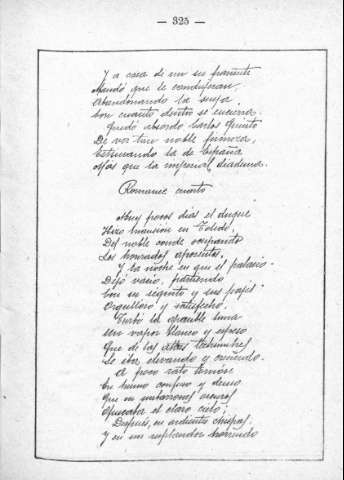 — 325 —
Y a casa de un su pariente
Mandó que le condujeran,
Abandonando la suya,
Con cuanto dentro se encierra.
Quedó absorto Carlos Quinto
De ver tan noble firmeza,
Estimando la de España
Más que la imperial diadema.
Romance cuarto
Muy pocos días el duque
Hizo mansión en Toledo,
Del noble conde ocupando
Los honrados aposentos.
Y la noche en que el palacio
Dejó vacío, partiendo
Con su séquito y sus pajes
Orgulloso y satisfecho,
Turbó la apacible luna
Un vapor blanco y espeso
Que de las altas techumbres
Se iba elevando y creciendo.
A poco rato tornose
En humo confuso y denso
Que en nubarrones oscuros
Ofuscaba el claro cielo;
Después, en ardientes chispas,
Y en un resplandor horrendo